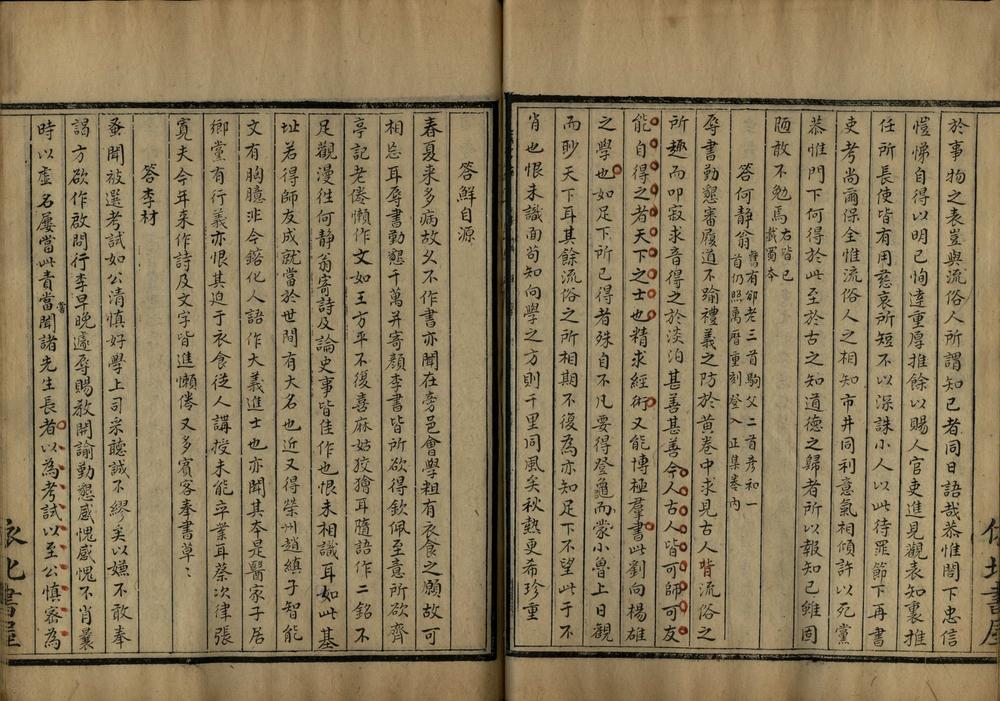 於事物之表豈與流俗人所謂知已者同日語哉恭惟閤下忠信
愷悌自得以明已恂達重厚推餘以賜人官吏進見觀表知裏推
任所長使皆有用慈哀所短不以深誅小人以此待罪節下再書
吏考尚爾保全惟流俗人之相知市井同利意氣相傾許以死黨
恭惟門下何得於此至於古之知道德之歸者所以報知已雖固
陋敢不勉焉
右皆已
載蜀本
答何靜翁
舊有卻老三首駒父二首彥和一
首仍照萬曆重刻登入正集卷內
辱書勤懇審履道不踰禮義之防於黄卷中求見古人皆流俗之
所趣而叩寂求音得之於淡泊甚善甚善今人古人皆可師可友
能自得之者天下之士也精求經術又能博極羣書此劉向楊雄
之學也如足下所已得者殊自不凡要得登龜而蒙小魯上日觀
而眇天下耳其餘流俗之所相期不復為亦知足下不望此于不
肖也恨未識面苟知向學之方則千里同風矣秋熱更希珍重
答鮮自源
春夏来多病故乆不作書亦聞在旁邑會學粗有衣食之願故可
相忘耳辱書勤懇千萬并寄顏李書皆所欲得欽佩至意所欲齊
亭記老倦懶作文如王方平不復喜麻姑狡獪耳隨語作二銘不
足觀漫徃何靜翁寄詩及論史事皆佳作也恨未相識耳如此基
址若得師友成就當於世間有大名也近又得榮州趙縝子智能
文有胸臆非今鎔化人語作大義進士也亦聞其本是醫家子居
鄉黨有行義亦恨其迫于衣食從人講授未能卒業耳蔡次律張
寛夫今年来作詩及文字皆進懶倦又多賓客奉書草〻
答李材
蚤聞被選考試如公清慎好學上司采聽誠不繆矣以嫌不敢奉
謁方欲作啟問行李早晚遽辱賜教開諭勤懇感愧感愧不肖曩
時以虛名屢當此責當聞諸先生長者以為考試以至公慎密為
嘗
書屋
化書屋